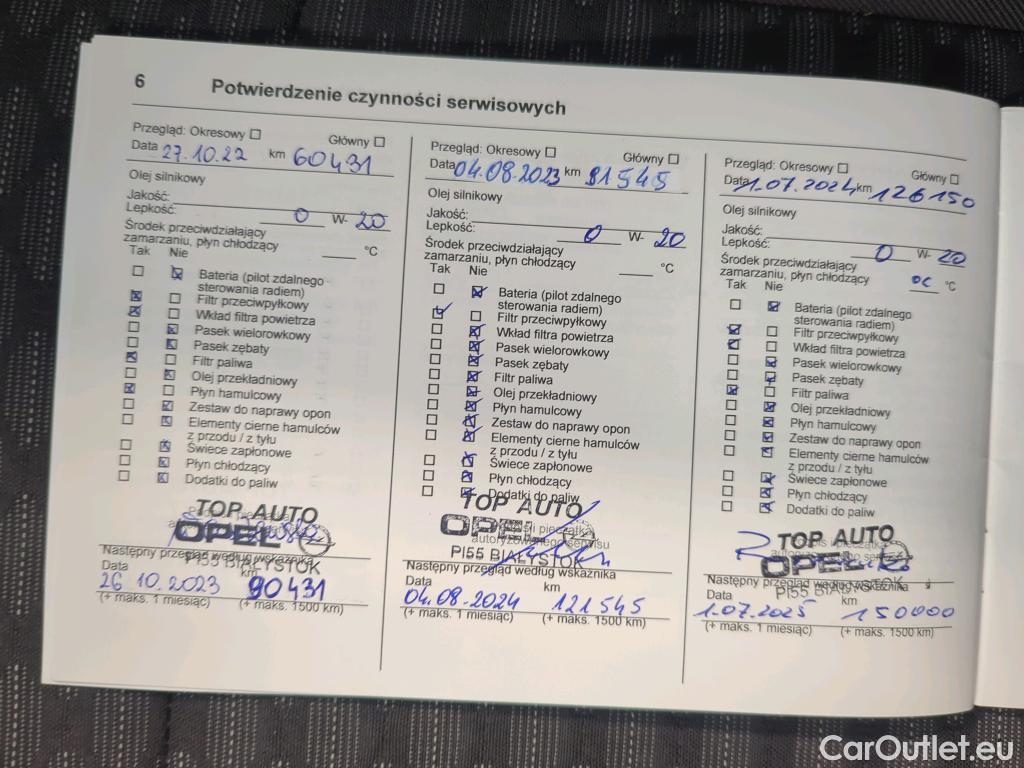 6 Potwierdzenie czynności serwisowych
Przegląd: Okresowy Główny
Data 27.10.22 km 60431
Olej silnikowy
Jakość:
Lepkość: 0 W- 20
Środek przeciwdziałający
zamarzaniu, płyn chłodzący °C
Tak Nie
Bateria (pilot zdalnego
sterowania radiem)
Filtr przeciwpyłkowy
Wkład filtra powietrza
Pasek wielorowkowy
Pasek zębaty
Filtr paliwa
Olej przekładniowy
Płyn hamulcowy
Zestaw do naprawy opon
Elementy cierne hamulców
z przodu / z tyłu
Świece zapłonowe
Płyn chłodzący
Dodatki do paliw
TOP AUTO
OPEL
PI55 BIAŁYSTOK
Następny przegląd według wskaźnika
Data km
26 10.2023 90431
(+ maks. 1 miesiąc) (+ maks. 1500 km)
Przegląd: Okresowy Główny
Data 04.08.2023 km 91545
Olej silnikowy
Jakość:
Lepkość: 0 W- 20
Środek przeciwdziałający
zamarzaniu, płyn chłodzący °C
Tak Nie
Bateria (pilot zdalnego
sterowania radiem)
Filtr przeciwpyłkowy
Wkład filtra powietrza
Pasek wielorowkowy
Pasek zębaty
Filtr paliwa
Olej przekładniowy
Płyn hamulcowy
Zestaw do naprawy opon
Elementy cierne hamulców
z przodu / z tyłu
Świece zapłonowe
Płyn chłodzący
Dodatki do paliw
TOP AUTO
OPEL pieczątka
autoryzowanego serwisu
PI55 BIAŁYSTOK
Następny przegląd według wskaźnika
Data km
04.08.2024 121545
(+ maks. 1 miesiąc) (+ maks. 1500 km)
Przegląd: Okresowy Główny
Data 1.07.2024 km 126150
Olej silnikowy
Jakość:
Lepkość: 0 W- 20
Środek przeciwdziałający
zamarzaniu, płyn chłodzący °C
Tak Nie
Bateria (pilot zdalnego
sterowania radiem)
Filtr przeciwpyłkowy
Wkład filtra powietrza
Pasek wielorowkowy
Pasek zębaty
Filtr paliwa
Olej przekładniowy
Płyn hamulcowy
Zestaw do naprawy opon
Elementy cierne hamulców
z przodu / z tyłu
Świece zapłonowe
Płyn chłodzący
Dodatki do paliw
TOP AUTO
OPEL
PI55 BIAŁYSTOK
Następny przegląd według wskaźnika
Data km
1.07.2025 150000
(+ maks. 1 miesiąc) (+ maks. 1500 km)
CarOutlet.eu